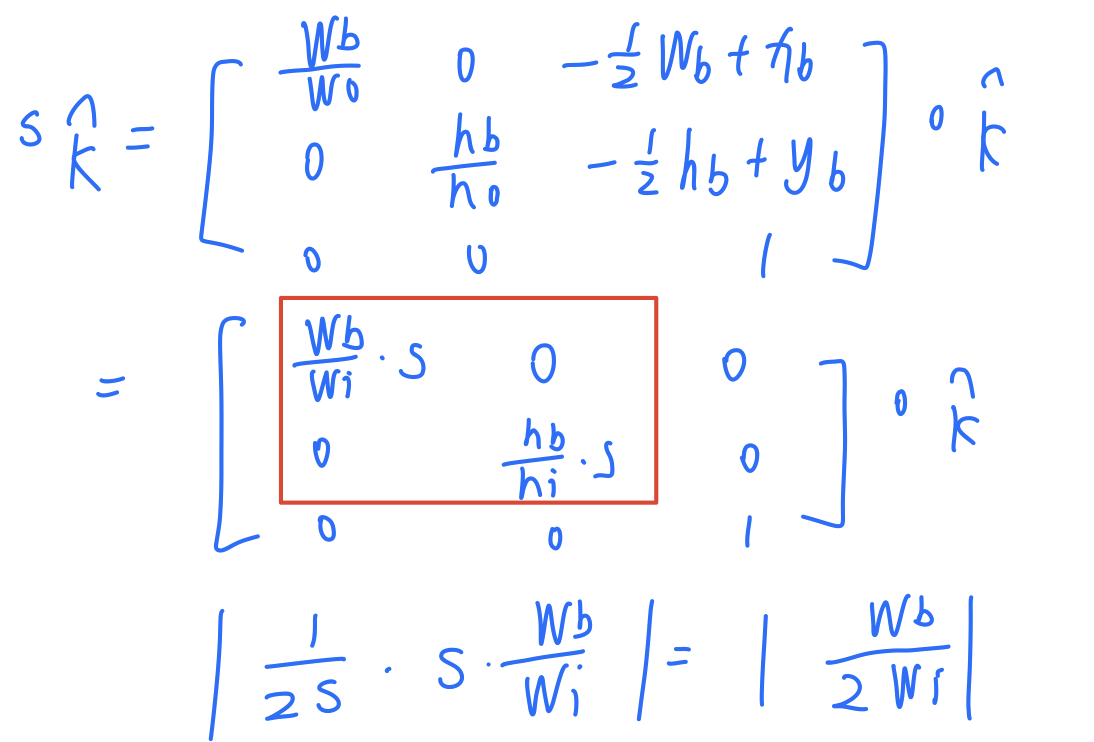 s k̂ = [ Wb/Wo 0 -1/2 Wb + hb
0 hb/ho -1/2 hb + yb
0 0 1 ] ∘ k̂
= [ Wb/Wi · s 0 0
0 hb/hi · s 0
0 0 1 ] ∘ k̂
| 1/2s · s · Wb/Wi | = | Wb/2Wi |